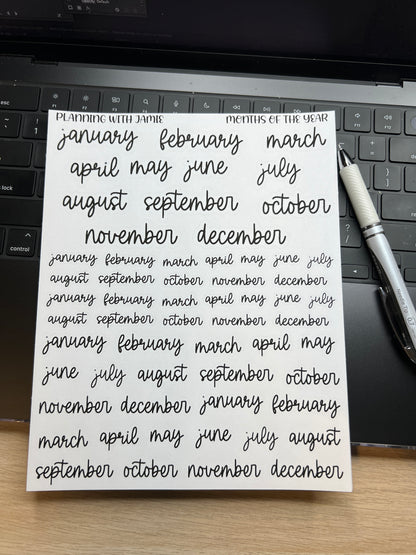 PLANNING WITH JAMIE MONTHS OF THE YEAR
january february march
april may june july
august september october
november december
january february march april may june july
august september october november december
january february march april may june july
august september october november december
january february march april may
june july august september october
november december january february
march april may june july august
september october november december
esc
caps lock
control